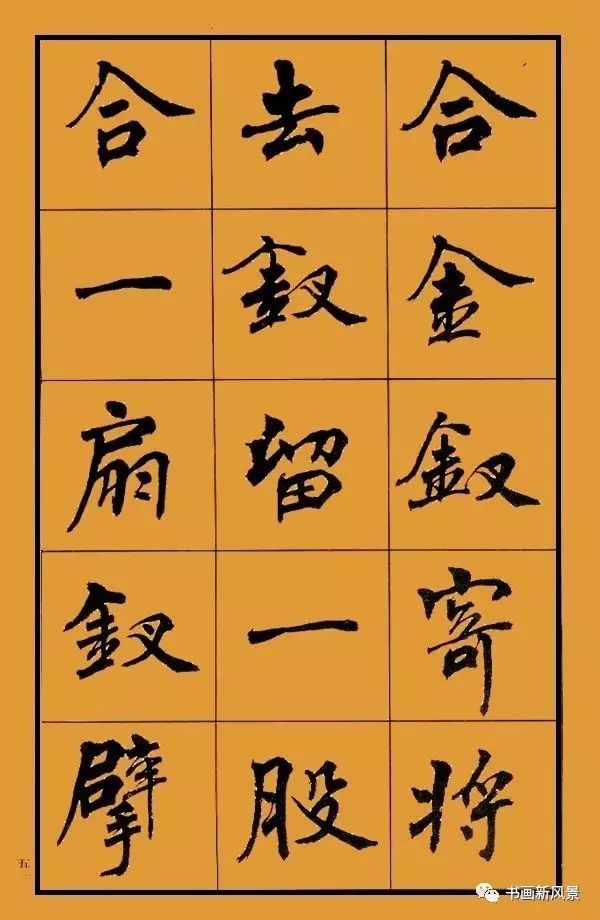 合金釵寄将
去釵留一股
合一扇釵擘
五
书画新风景